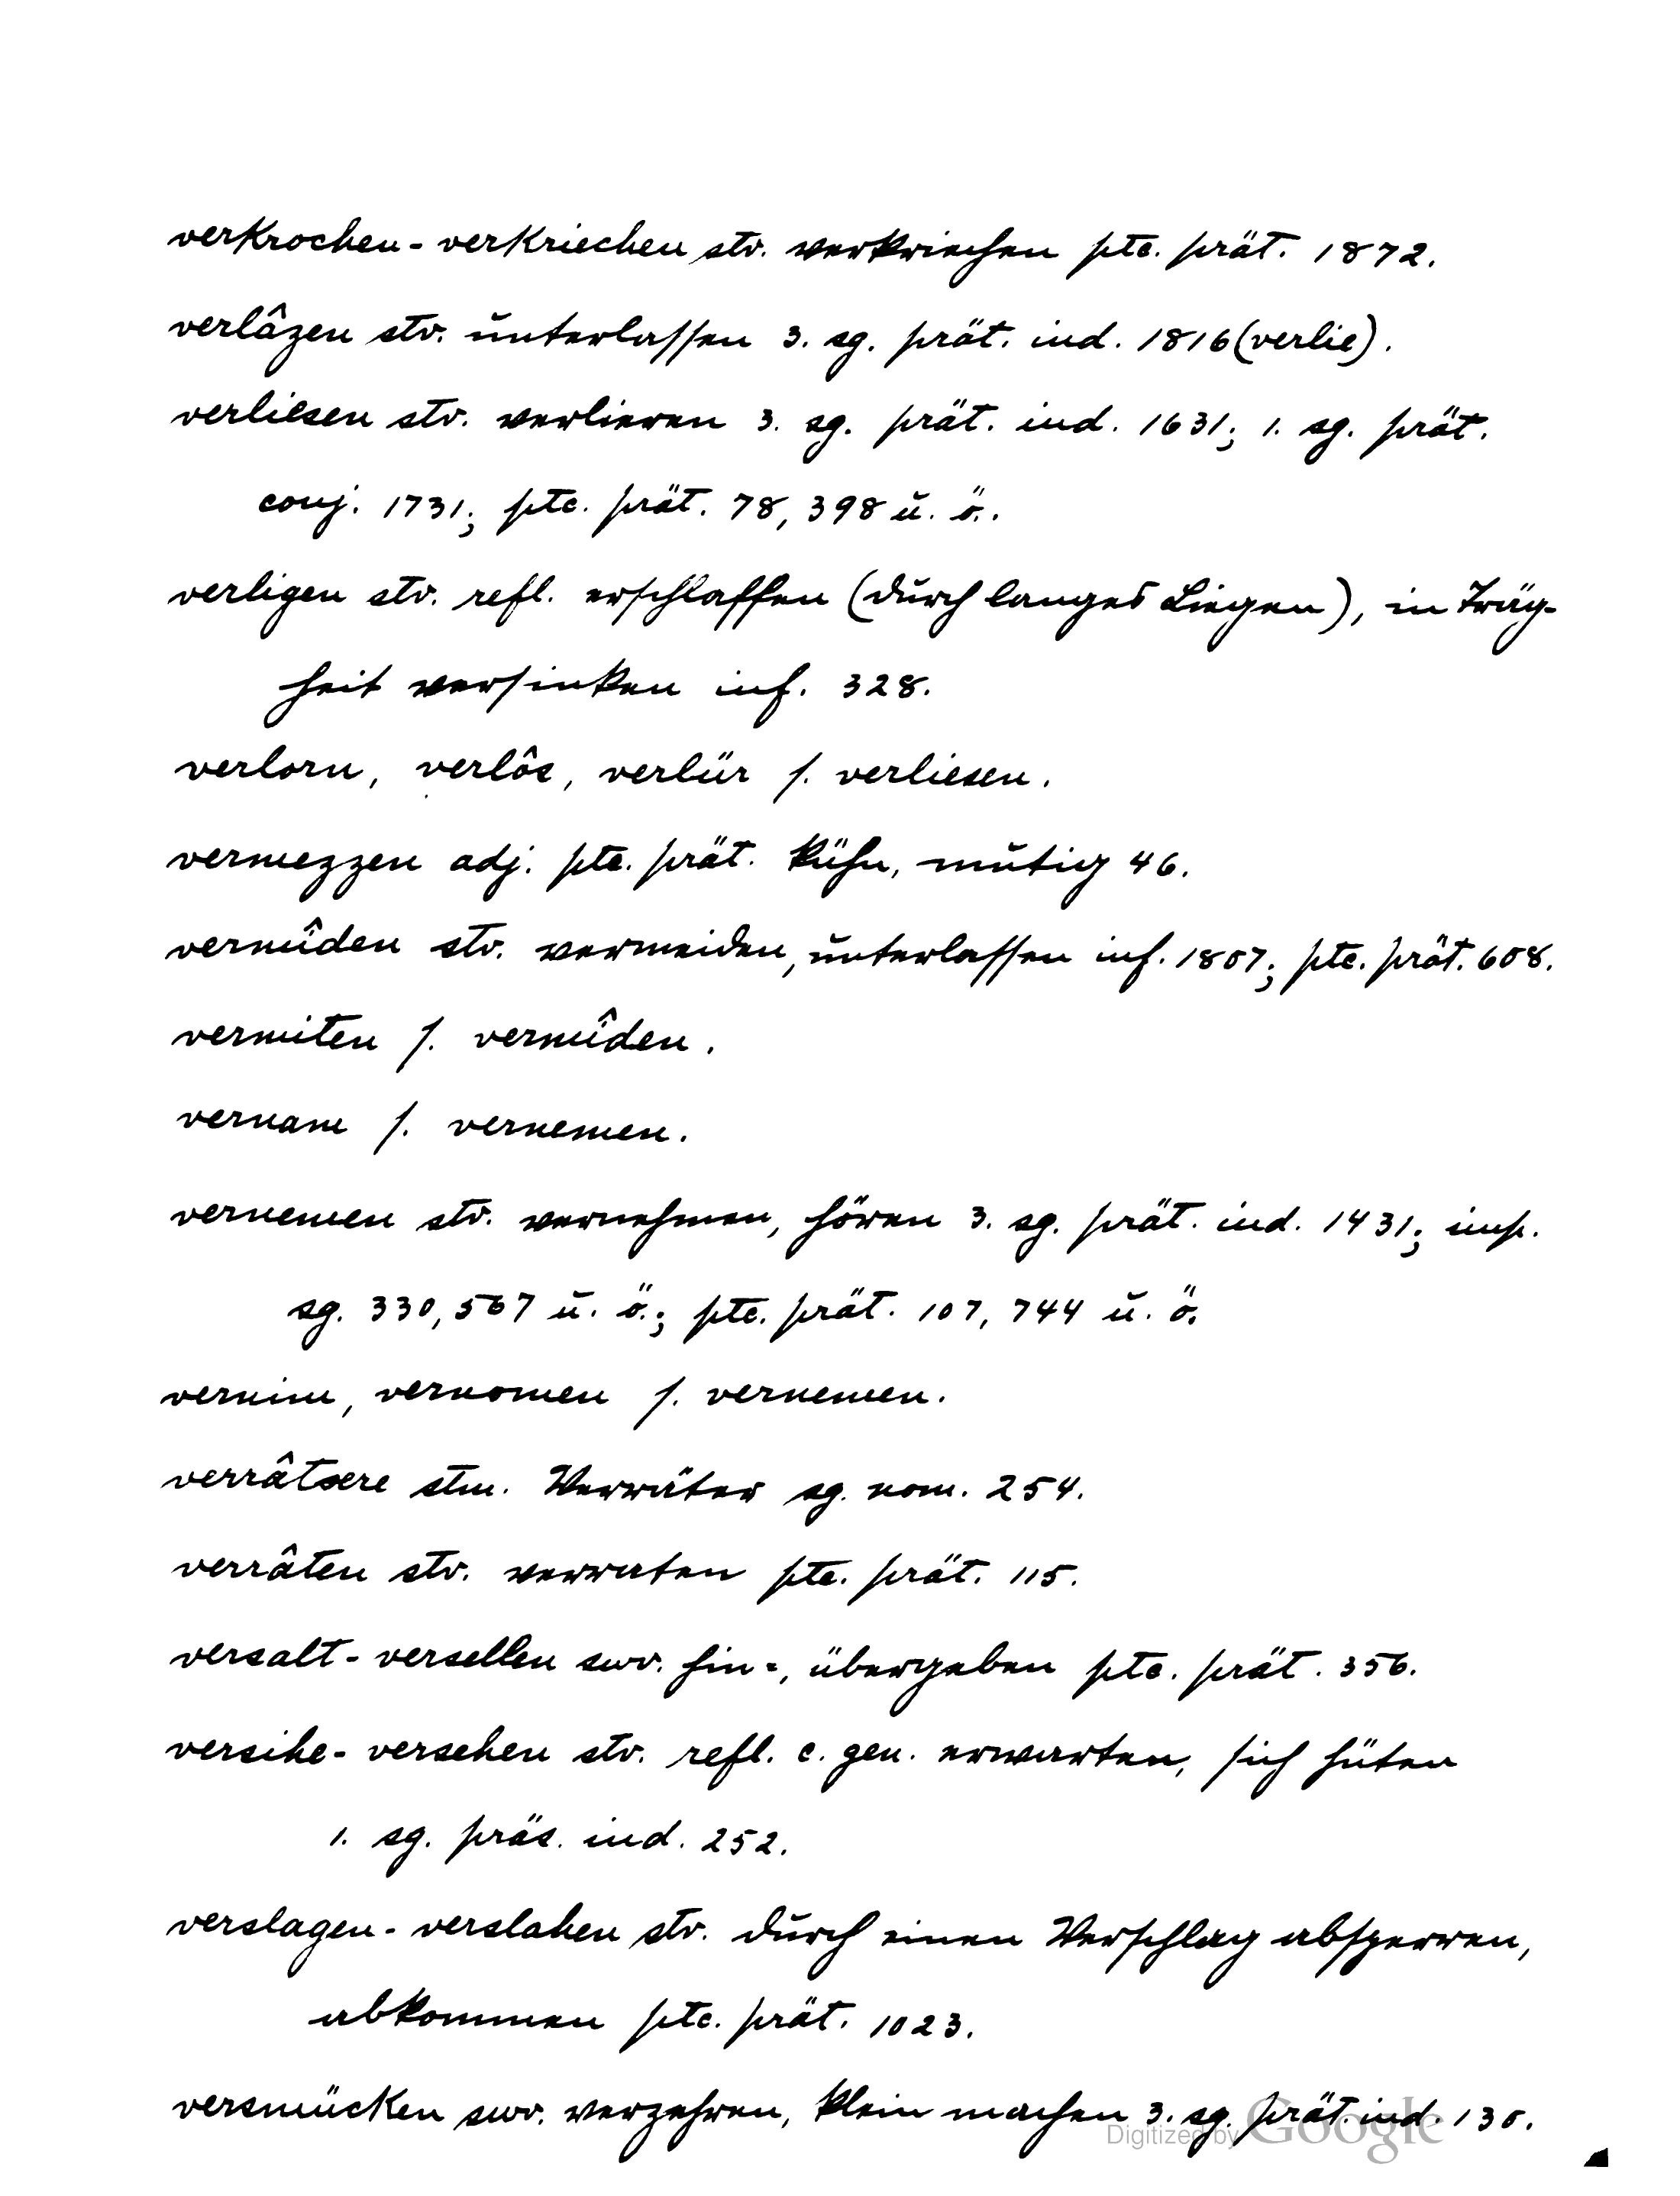 verkrochen - verkriechen stv. verkriechen ptc. prät. 1872.
verlâzen stv. unterlassen 3. sg. prät. ind. 1816 (verlie).
verliesen stv. verlieren 3. sg. prät. ind. 1631; 1. sg. prät.
conj. 1731; ptc. prät. 78, 398 u. ö..
verligen stv. refl. erschlaffen (durch langes Liegen), in Träg-
heit versinken inf. 328.
verlorn, verlôs, verlür s. verliesen.
vermezzen adj. ptc. prät. kühn, mutig 46.
vermîden stv. vermeiden, unterlassen inf. 1807; ptc. prät. 608.
vermiten s. vermîden.
vernam s. vernemen.
vernemen stv. vernehmen, hören 3. sg. prät. ind. 1431; imp.
sg. 330, 567 u. ö.; ptc. prät. 107, 744 u. ö.
vernim, vernomen s. vernemen.
verrâtaere stm. Verräter sg. nom. 254.
verrâten stv. verraten ptc. prät. 115.
versalt - versellen swv. hin-, übergeben ptc. prät. 356.
versihe - versehen stv. refl. c. gen. erwarten, sich hüten
1. sg. präs. ind. 252.
verslagen - verslahen stv. durch einen Verschlag absperren,
abkommen ptc. prät. 1023.
versmücken swv. verzehren, klein machen 3. sg. prät. ind. 130.
Digitized by Google